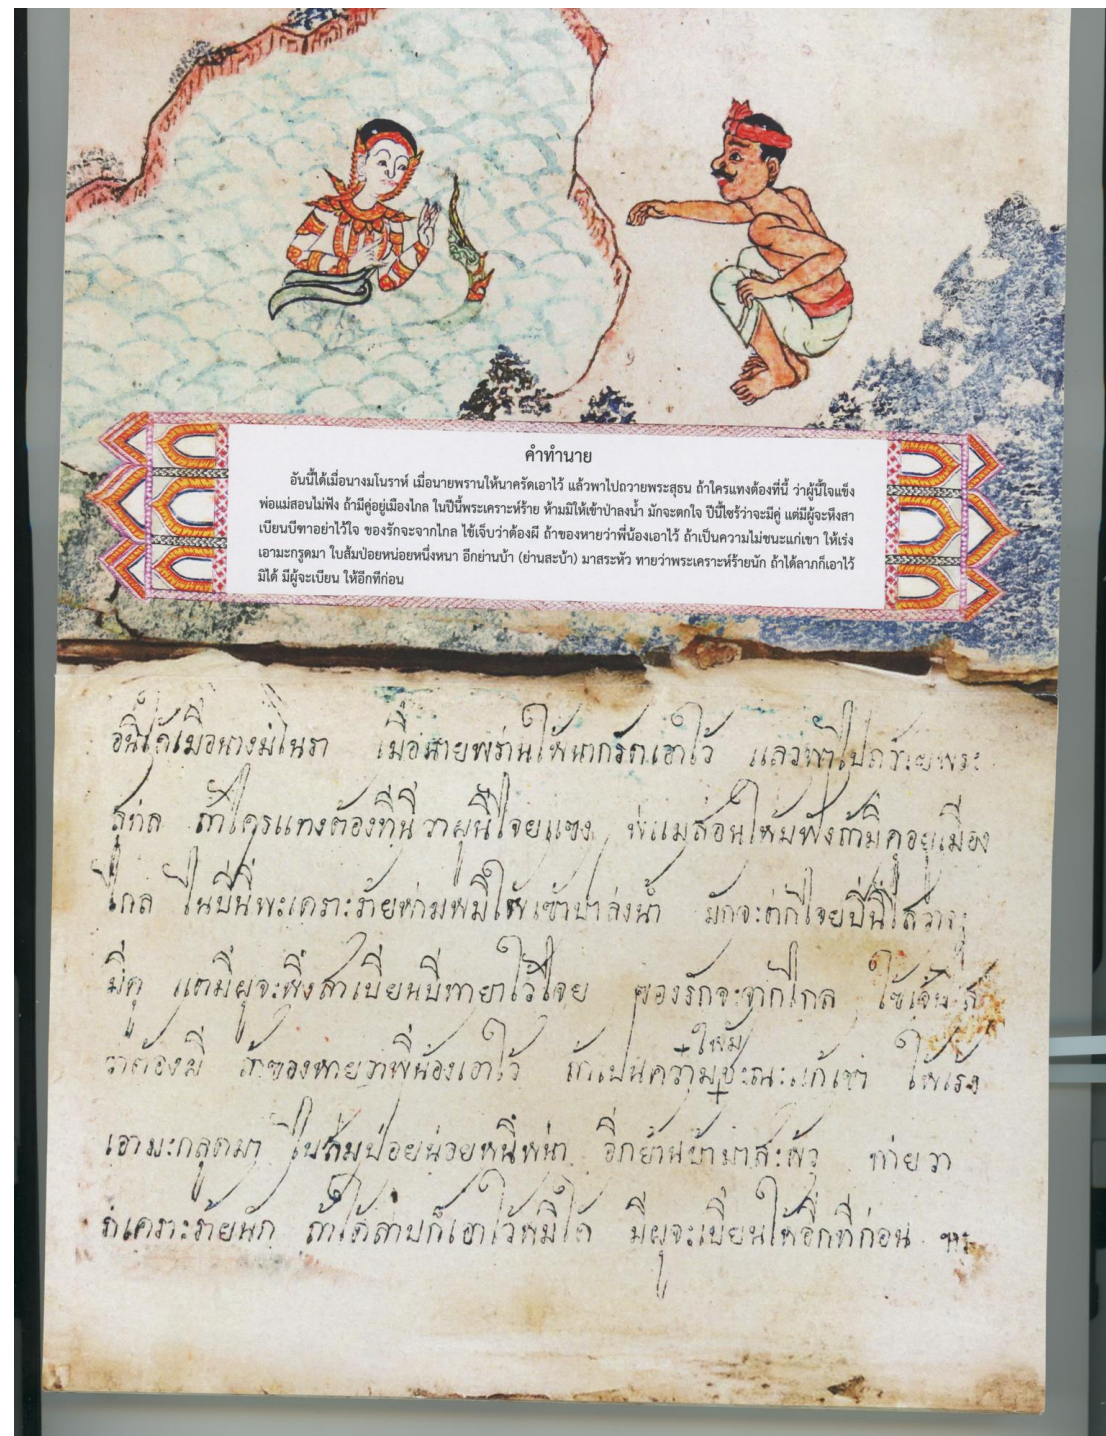 คำทำนาย
อันนี้ได้เมื่อนางมโนราห์ เมื่อนายพรานให้นาครัดเอาไว้ แล้วพาไปถวายพระสุธน ถ้าใครแทงต้องที่นี้ ว่าผู้นี้ใจแข็ง
พ่อแม่สอนไม่ฟัง ถ้ามีคู่อยู่เมืองไกล ในปีนี้พระเคราะห์ร้าย ห้ามมิให้เข้าป่าลงน้ำ มักจะตกใจ ปีนี้ไซร้ว่าจะมีคู่ แต่มีผู้จะหึงสา
เบียนบีฑาอย่าไว้ใจ ของรักจะจากไกล ไข้เจ็บว่าต้องผี ถ้าของหายว่าพี่น้องเอาไว้ ถ้าเป็นความไม่ชนะแก่เขา ให้เร่ง
เอามะกรูดมา ใบส้มป่อยหน่อยหนึ่งหนา อีกย่านบ้า (ย่านสะบ้า) มาสระหัว ทายว่าพระเคราะห์ร้ายนัก ถ้าได้ลาภก็เอาไว้
มิได้ มีผู้จะเบียน ให้อีกทีก่อน
อนี้ได้เมือนางมโนรา เมือนายพรานให้นากรัดเอาไว้ แลวพาไปถวายพระ
สุทล ถ้าใครแทงต้องที่นี้ วาผูนี้ใจยแขง พแมสอนให้มฟังถ้ามีคูอยูเมือง
ไกล ในบีนี้พะเคราะร้ายหามหมีให้เข้าปาลงน้ำ มักจะตกใจยปีนี้ไส
มีคู แตมีผูจะหึงสาเบียนบีทายาไว้ใจย ของรักจะจากไกล ไข้เจ็บ
วาต้องผี ถ้าของหายวาพี่น้องเอาไว้ ถ้าเปนความ ให้ม ชะณะแก่เขา ให้เรง
เอามะกลูดมา ใบส้มปอยนอยหนึหนา อีกยานบ้ามาสะหัว ทายวา
เคราะร้ายนัก ถ้าได้ลาบก็เอาไว้หมีได้ มีผูจะเบียนให้อีกทีก่อน